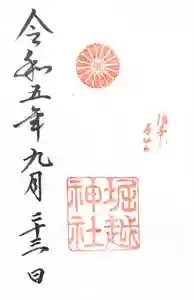 堀越神社
令和五年九月二十三日